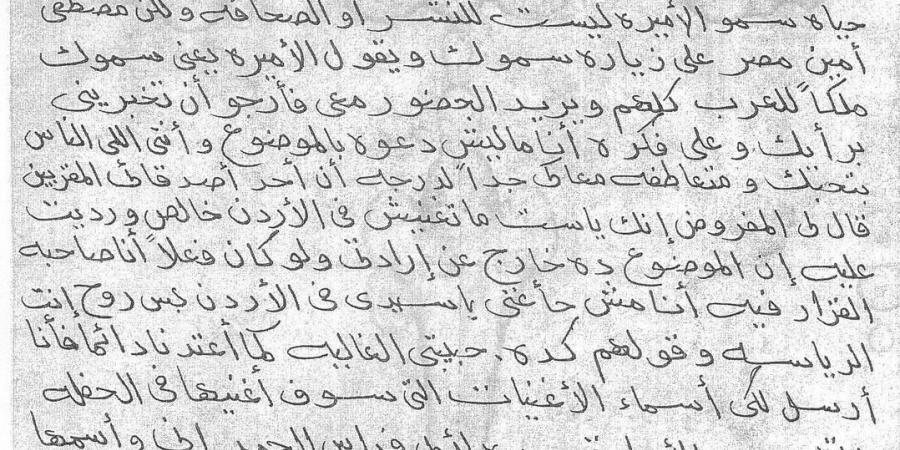 حياة سمو الأميره ليست للنشر أو الصحافه ولكن مصطفى
أمين مصر على زيارة سموك ويقول الأميره يعنى سموك
ملكاً للعرب كلهم ويريد الحضور معى فأرجو أن تخبرينى
برأيك. وعلى فكرة أنا ماليش دعوه بالموضوع وأنتى اللى الناس
بتحبك ومتعاطفه معاكى جداً لدرجه أن أحد أصدقائى المقربين
قال لى المفروض إنك ياست ماتغنيش فى الأردن خالص ورديت
عليه إن الموضوع ده خارج عن إرادتى ولو كان فعلاً أنا صاحبه
القرار فيه أنا مش حأغنى ياسيدى فى الأردن بس روح إنت
الرياسه وقولهم كده. حبيبتى الغاليه كما أعتدنا دائما فأنا
أرسل لكى أسماء الأغنيات التى سوف أغنيها فى الحفله
وأسمها